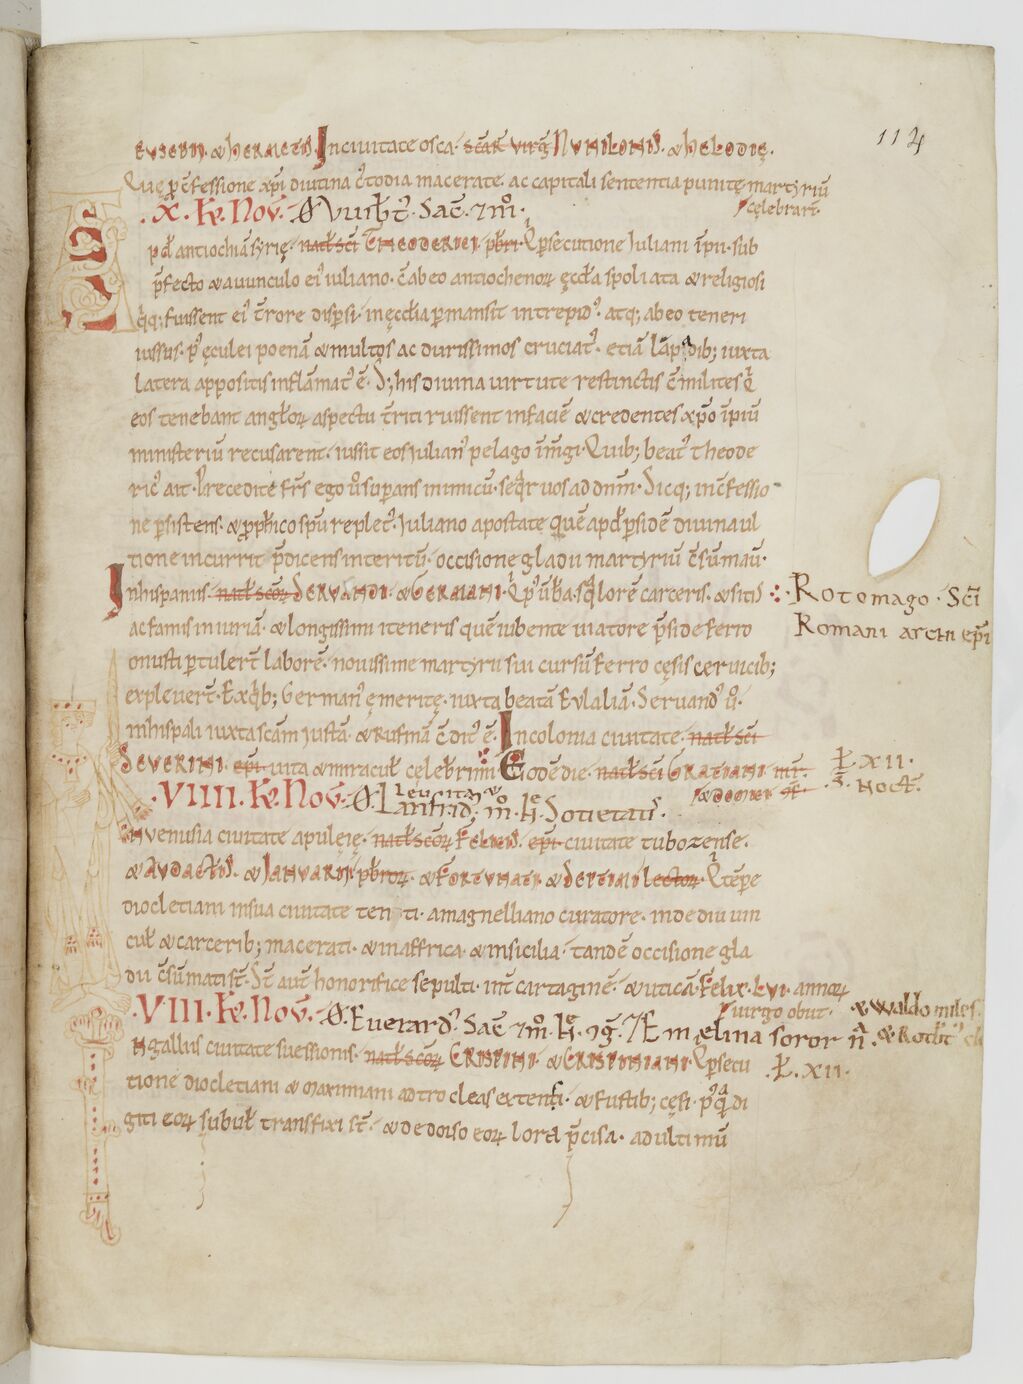 114
EUSEBII. & HERMETIS. In civitate osca. scarū virḡ NUNILONIS. & HELODIĘ.
Quę ꝑ c̄fessione xp̄i diutina c᾽todia macerate. ac capitali sententia punitę martyriū
celebrart̄.
.X. Kł. Nov̄.
pđ antiochiā syrię. natł sc̄i THEODERICI. pb̄ri. Q ꝑsecutione Iuliani im̄pii. sub
p̄fecto & avunculo ei᾽ iuliano. c̄ ab eo antiochenoꝝ ęccła spoliata & religiosi
q̄q; fuissent ei᾽ t̄rore disꝑsi. in ęccłia ꝑmansit intrepid᾽. atq; ab eo teneri
iussus. p᾽ ęculei poenā & multos ac durissimos cruciat᾽. etiā lāpadib; iuxta
latera appositis inflāmat᾽ ē. S; his divina virtute restinctis c̄ milites q
eos tenebant angłoꝝ aspectu t̄riti ruissent in faciē & credentes xp̄o im̄piū
ministeriū recusarent. iussit eos iulian᾽ pelago im̄gi. Quib; beat᾽ theode
ric᾽ ait. Precedite fr̄s ego v̊ suꝑans inimicū. seq̄r vos ad dn̄m. Sicq; in c̄fessio
ne ꝑsistens. & ꝓph̄ico sp̄u replet᾽. Iuliano apostate quē apđ ꝑsidē divina ul
tione incurrit p̄dicens interitū. occisione gladii martyriū c̄sūmav̄.
In hispaniis. natł scoꝝ SERVANDI. & GERMANI. Q p᾽ v̄ba. sq̄lorē carceris. & sitis
ac famis iniuriā. & longissimi iteneris quē iubente viatore p̄side ferro
onusti ꝑtulert̄ laborē. novissime martyrii sui cursū ferro cęsis cervicib;
explevert̄. Ex q̄b; German᾽ ęmeritę. iuxta beatā Eulaliā. Servand᾽ v̊.
in hispali iuxta scām iustā. & rufinā c̄dit᾽ ē. In colonia civitate. natł sc̄i
SEVERINI. ep̄i. vita & miracuł celebrimi. Eodē die. natł sc̄i GRATIANI. mr̄.
Rotomago. Sc̄i
Romani archi ep̄i
Ł. XII.
. VIIII. Kł. Nov̄. Ø. Lanfrid᾽. m̊.
In venusia civitate apuleię. natł scoꝝ FELICIS. ep̄i. civitate tubozense.
& AUDACTIS. & IANUARII. pb̄roꝝ. & FORTUNATI. & SEPTIMI lectoꝝ. Q tēp̄e
diocletiani in sua civitate ten ti. a magnelliano curatore. inde diu vin
cuł & carcerib; macerati. & in affrica. & in sicilia. tandē occisione gla
dii c̄sūmati st̄. St̄ aut̄ honorifice sepulti. int̄ cartaginē. & uticā. Felix. LVI. annoꝝ
. VIII. Kł. Nov̄. Ø. Everard᾽. Sac̄ ⁊ m̊.
virgo obiit.
& Waldo miles.
Emelina soror n̄.
In galliis civitate suessionis. natł scoꝝ CRISPINI. & CRISPINIANI. Q ꝑsecu
.Ł. XII.
tione diocletiani & maximiani ad trocleas extensi. & fustib; cęsi. p᾽q̄ di
giti eoꝝ subuł transfixi st̄. & de dorso eoꝝ lora p̄cisa. ad ultimū